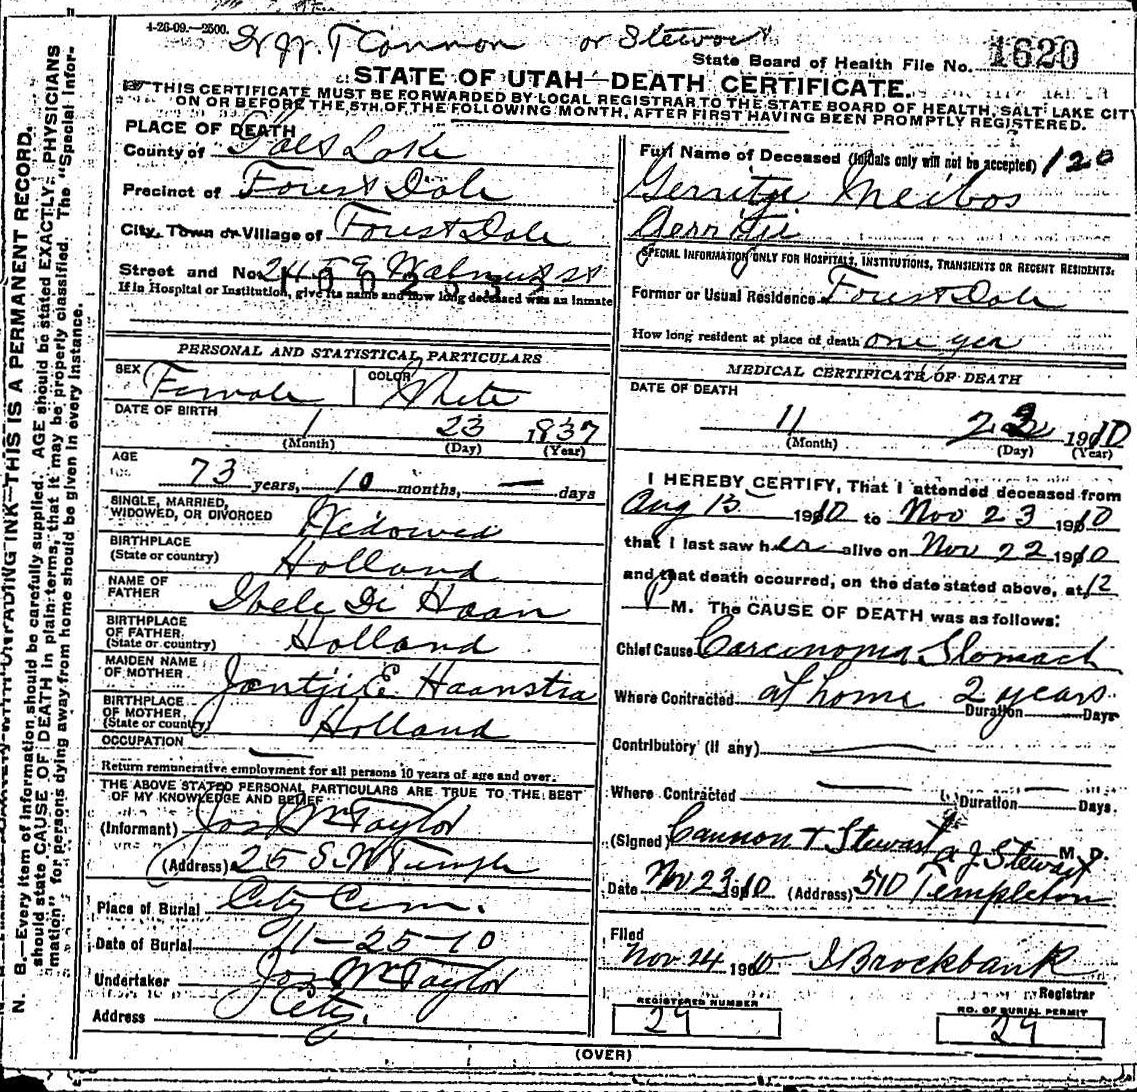 4-26-09.—2500.
or Stewart
State Board of Health File No. 1620
STATE OF UTAH—DEATH CERTIFICATE.
THIS CERTIFICATE MUST BE FORWARDED BY LOCAL REGISTRAR TO THE STATE BOARD OF HEALTH, SALT LAKE CITY
ON OR BEFORE THE 5TH OF THE FOLLOWING MONTH, AFTER FIRST HAVING BEEN PROMPTLY REGISTERED.
N. B.—Every item of information should be carefully supplied. AGE should be stated EXACTLY. PHYSICIANS
should state CAUSE OF DEATH in plain terms, that it may be properly classified. The "Special Infor-
mation" for persons dying away from home should be given in every instance.
PLACE OF DEATH
County of Salt Lake
Precinct of Forest Dale
City, Town or Village of Forest Dale
Street and No. 245 E Walnut St
1002532
If in Hospital or Institution, give its name and how long deceased was an inmate
PERSONAL AND STATISTICAL PARTICULARS
SEX Female COLOR White
DATE OF BIRTH 1 23 1837
(Month) (Day) (Year)
AGE 73 years, 10 months, — days
SINGLE, MARRIED,
WIDOWED, OR DIVORCED Widowed
BIRTHPLACE
(State or country) Holland
NAME OF
FATHER Ibele De Haan
BIRTHPLACE
OF FATHER
(State or country) Holland
MAIDEN NAME
OF MOTHER Jantji E. Haanstra
BIRTHPLACE
OF MOTHER
(State or country) Holland
OCCUPATION —
Return remunerative employment for all persons 10 years of age and over.
THE ABOVE STATED PERSONAL PARTICULARS ARE TRUE TO THE BEST
OF MY KNOWLEDGE AND BELIEF
(Informant) Jos Wm Taylor
(Address) 25 S. W Temple
Place of Burial City Cem.
Date of Burial 11-25-10
Undertaker Jos Wm Taylor
Address City.
Full Name of Deceased (Initials only will not be accepted) 120
Gerritje Meibos
Gerritje
SPECIAL INFORMATION ONLY FOR HOSPITALS, INSTITUTIONS, TRANSIENTS OR RECENT RESIDENTS:
Former or Usual Residence Forest Dale
How long resident at place of death one year
MEDICAL CERTIFICATE OF DEATH
DATE OF DEATH
11 23 1910
(Month) (Day) (Year)
I HEREBY CERTIFY, That I attended deceased from
Aug 15 1910 to Nov 23 1910
that I last saw her alive on Nov 22 1910
and that death occurred, on the date stated above, at 12
P M. The CAUSE OF DEATH was as follows:
Chief Cause Carcinoma Stomach
Where Contracted at home Duration 2 years Days
Contributory (if any) —
Where Contracted — Duration — Days.
(Signed) Cannon & Stewart A J Stewart M. D.
Date Nov 23 1910 (Address) 510 Templeton
Filed
Nov 24 1910 I Brockbank
Registrar
REGISTERED NUMBER
29
NO. OF BURIAL PERMIT
29
(OVER)